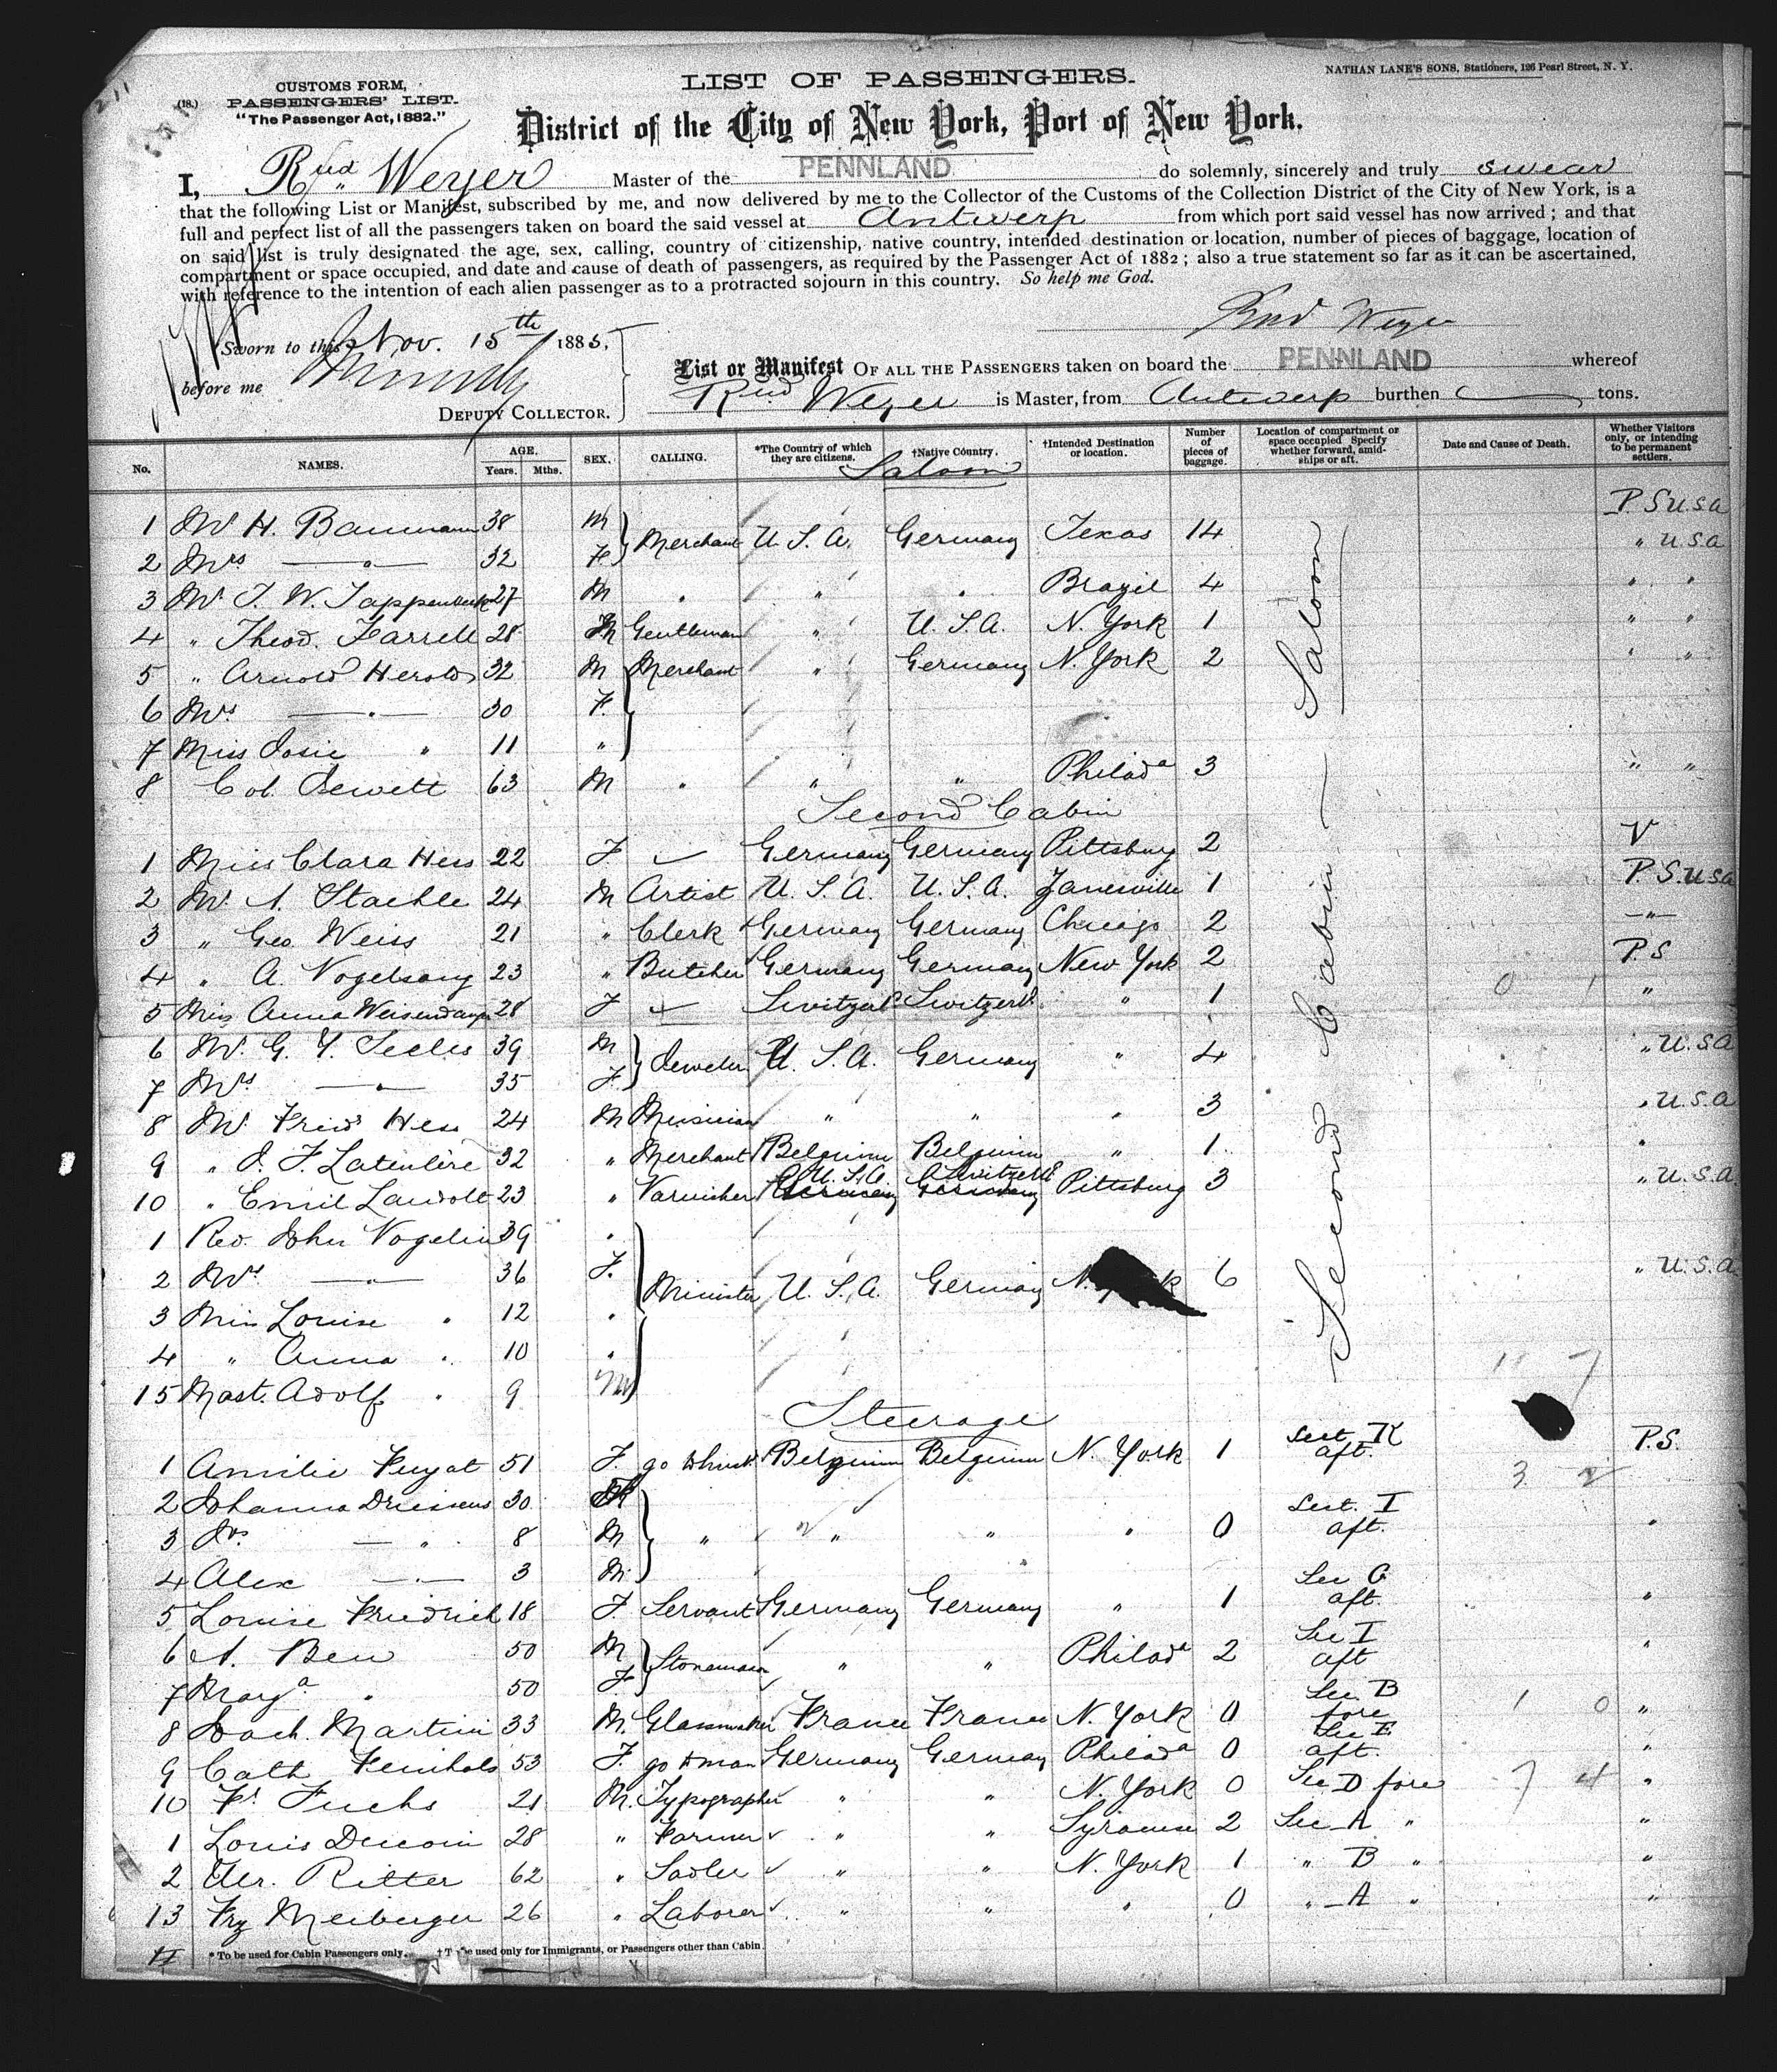 211
(18.)
CUSTOMS FORM,
PASSENGERS' LIST.
"The Passenger Act, 1882."
LIST OF PASSENGERS.
NATHAN LANE'S SONS, Stationers, 126 Pearl Street, N. Y.
District of the City of New York, Port of New York.
I, Rud Weyer Master of the PENNLAND do solemnly, sincerely and truly swear
that the following List or Manifest, subscribed by me, and now delivered by me to the Collector of the Customs of the Collection District of the City of New York, is a
full and perfect list of all the passengers taken on board the said vessel at Antwerp from which port said vessel has now arrived; and that
on said list is truly designated the age, sex, calling, country of citizenship, native country, intended destination or location, number of pieces of baggage, location of
compartment or space occupied, and date and cause of death of passengers, as required by the Passenger Act of 1882; also a true statement so far as it can be ascertained,
with reference to the intention of each alien passenger as to a protracted sojourn in this country. So help me God.
Rud Weyer
Sworn to this Nov. 15th 1885,
before me
DEPUTY COLLECTOR.
List or Manifest OF ALL THE PASSENGERS taken on board the PENNLAND whereof
Rud Weyer is Master, from Antwerp burthen tons.
No. NAMES. AGE. Years. Mths. SEX. CALLING. *The Country of which they are citizens. †Native Country. †Intended Destination or location. Number of pieces of baggage. Location of compartment or space occupied Specify whether forward, amidships or aft. Date and Cause of Death. Whether Visitors only, or intending to be permanent settlers.
Saloon
1 Mr H. Baumann 38 M Merchant U. S. A. Germany Texas 14 P. S U.S.A
2 Mrs — " — 32 F " U.S.A
3 Mr. T. W. Tappenbeck 27 M " " " Brazil 4 " "
4 " Theod. Farrell 28 M Gentleman " U. S. A. N. York 1 " "
5 " Arnold Herold 32 M Merchant " Germany N. York 2 " "
6 Mrs — " — 30 F.
7 Miss Josie " 11 "
8 Col. Jewett 63 M " " " Philada 3 " "
Saloon
Second Cabin
1 Miss Clara Hess 22 F Germany Germany Pittsburg 2 V
2 Mr. A. Staehle 24 M Artist U. S. A. U. S. A. Janesville 1 P. S. U.S.A
3 " Geo. Weiss 21 " Clerk Germany Germany Chicago 2 — " —
4 " A. Vogelsang 23 " Butcher Germany Germany New York 2 P. S
5 Miss Anna 28 F Switzerl. Switzerl. " 1 "
6 Mr. G. Y. 39 M Jeweler U. S. A. Germany " 4 " U.S.A
7 Mrs — " — 35 F
8 Mr. Fried Hess 24 M Musician " " " 3 " U.S.A
9 " J. F. 32 " Merchant Belgium Belgium " 1 "
10 " Emil Landolt 23 " Varnisher U. S. A. Switzerl. Pittsburg 3 " U.S.A.
1 Rev. John Vogelin 39 "
2 Mrs — " — 36 F. Minister U. S. A. Germany N. York 6 " U.S.A
3 Miss Louise " 12 "
4 " Anna " 10 "
15 Mast. Adolf " 9 M
Second Cabin
Steerage
1 Amilie Fuyat 51 F. Belgium Belgium N. York 1 Sect. K aft. P.S.
2 Johanna Driessens 30 F
3 — " 8 M " " " " 0 Sect. I aft. "
4 Alex — " — 3 M
5 Louise Friedrich 18 F. Servant Germany Germany " 1 Sec G aft. "
6 A. Ben 50 M Stoneman " " Philada 2 Sec I aft "
7 Marga " 50 F
8 Martin 33 M. Glassmaker France France N. York 0 Sec B fore "
9 Cath 53 F. Germany Germany Philada 0 Sec E aft. "
10 Fr. Fuchs 21 M. Typographer " " N. York 0 Sec D fore "
1 Louis 28 " Farmer " " Syracuse 2 Sec A " "
2 Ulr. Ritter 62 " Sadler " " N. York 1 " B " "
13 Frz Meiberger 26 " Laborer " " " 0 " A " "
* To be used for Cabin Passengers only. † To be used only for Immigrants, or Passengers other than Cabin